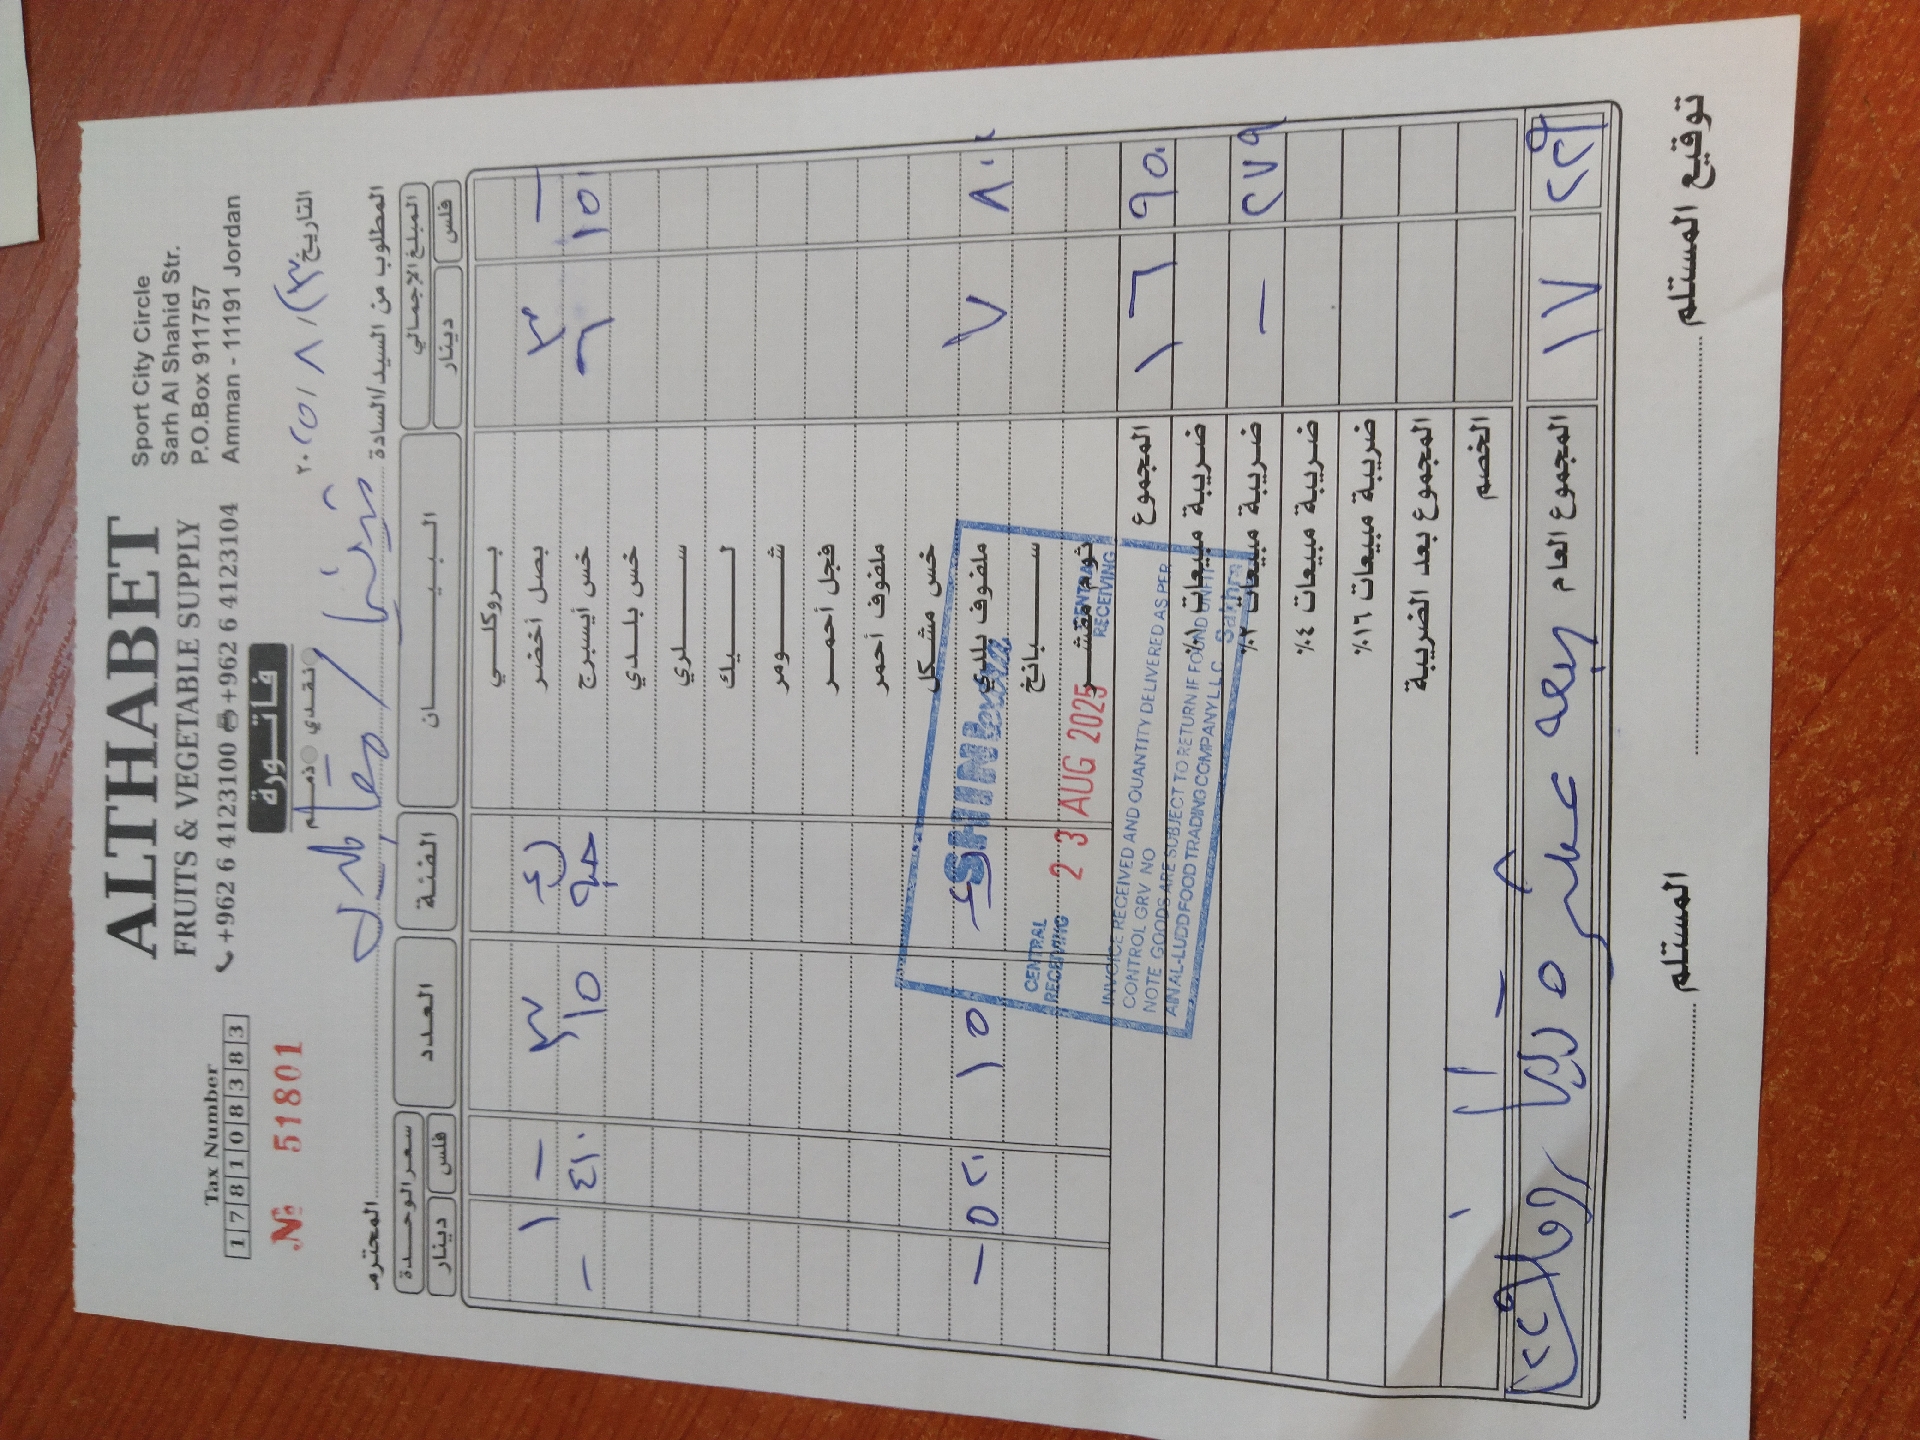 ALTHABET
FRUITS & VEGETABLE SUPPLY
+962 6 4123100 +962 6 4123104
Sport City Circle
Sarh Al Shahid Str.
P.O.Box 911757
Amman - 11191 Jordan
Tax Number
178108383
№ 51801
فاتورة
نقدي ذمم
التاريخ ٢٣ / ٨ / ٢٠٢٥
المطلوب من السيد/السادة المحترم
المبلغ الإجمالي البيان الفئة العدد سعر الوحدة
فلس دينار فلس دينار
بروكلي
– ٣ بصل أخضر ٣ – ١
١٥٠ ٦ خس أيسبرج حبه ١٥ ٤١٠ –
خس بلدي
سلري
ليك
شومر
فجل أحمر
ملفوف أحمر
خس مشكل
٨٠٠ ٧ ملفوف بلدي ١٥ ٥٢٠ –
سبانخ
ثوم مقشر
٩٥٠ ١٦ المجموع
ضريبة مبيعات ١٪
٢٧٩ – ضريبة مبيعات ٢٪
ضريبة مبيعات ٤٪
ضريبة مبيعات ١٦٪
المجموع بعد الضريبة
الخصم
٢٢٩ ١٧ المجموع العام
CENTRAL RECEIVING
23 AUG 2025
CENTRAL RECEIVING
INVOICE RECEIVED AND QUANTITY DELIVERED AS PER
CONTROL GRV NO
NOTE GOODS ARE SUBJECT TO RETURN IF FOUND UNFIT
AIN AL-LUDD FOOD TRADING COMPANY L.L.C
المستلم
توقيع المستلم